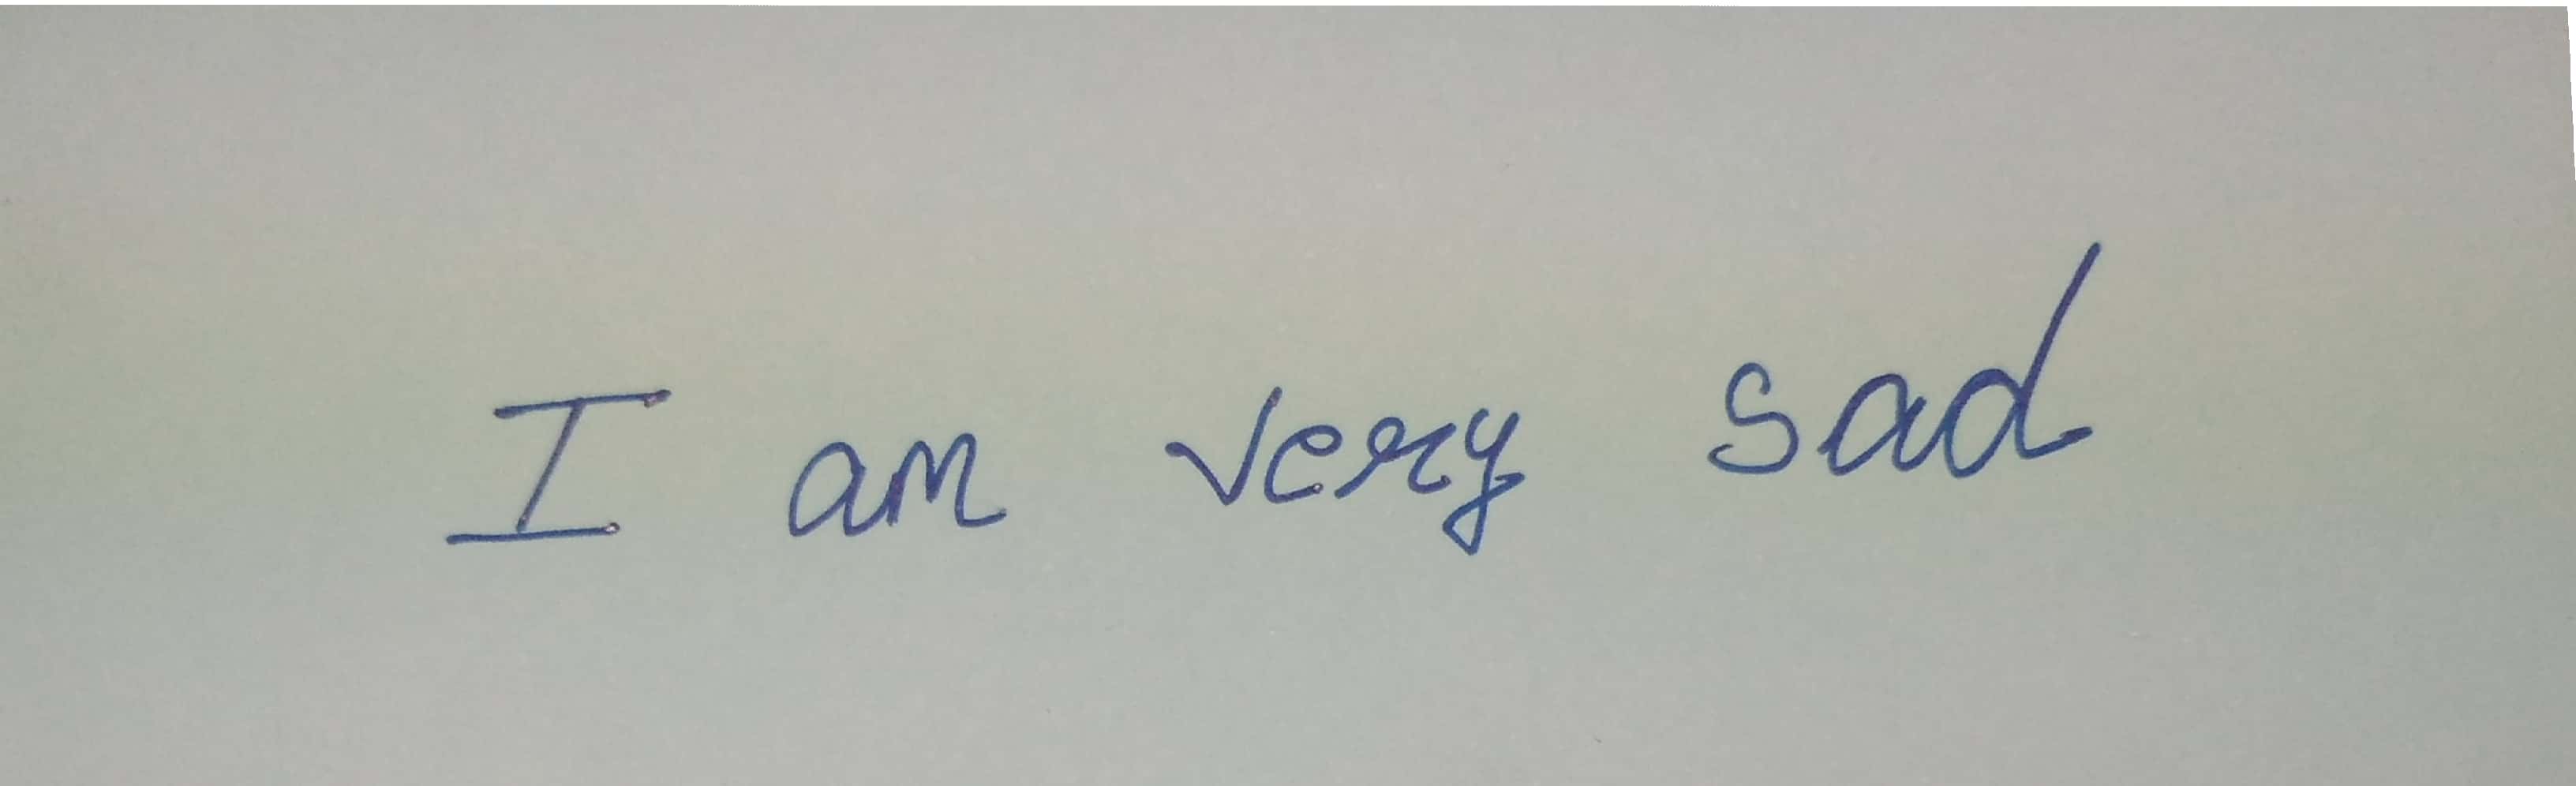 I am very sad